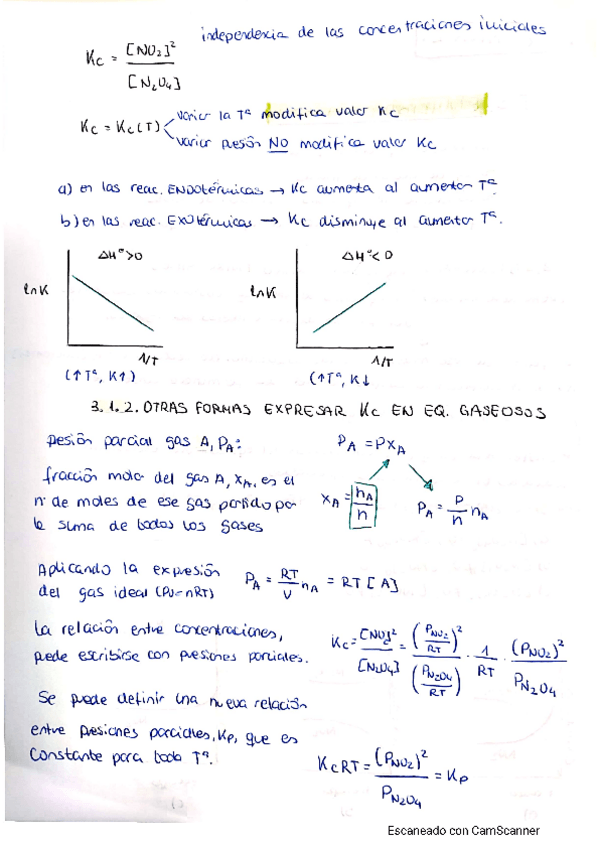 independencia de las concentraciones iniciales
Kc = [NO2]² / [N2O4]
Kc = Kc(T)
variar la Tª modifica valor Kc
variar presión NO modifica valor Kc
a) en las reac. ENDOTÉRMICAS → Kc aumenta al aumentar Tª
b) en las reac. EXOTÉRMICAS → Kc disminuye al aumentar Tª.
ΔHº>0
lnK
1/T
(↑Tª, K↑)
ΔHº<0
lnK
1/T
(↑Tª, K↓
3.1.2. OTRAS FORMAS EXPRESAR Kc EN EQ. GASEOSOS
Pesión parcial gas A, PA:
PA = PXA
fracción molar del gas A, XA, es el
nº de moles de ese gas partido por
la suma de todos los gases
XA = nA / n
PA = P/n nA
Aplicando la expresión
del gas ideal (PV=nRT)
PA = RT/V nA = RT [A]
La relación entre concentraciones,
puede escribirse con presiones parciales.
Kc = [NO2]² / [N2O4] = (PNO2/RT)² / (PN2O4/RT) · 1/RT · (PNO2)² / PN2O4
Se puede definir una nueva relación
entre presiones parciales, Kp, que es
constante para toda Tª.
KcRT = (PNO2)² / PN2O4 = Kp
Escaneado con CamScanner